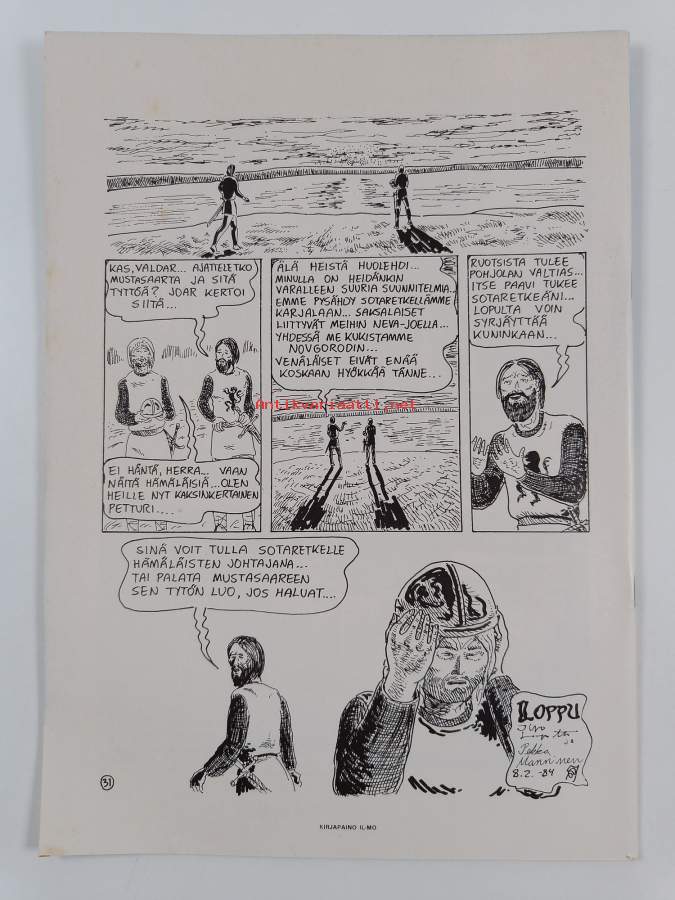 KAS, VALDAR... AJATTELETKO
MUSTASAARTA JA SITÄ
TYTTÖÄ? JOAR KERTOI
SIITÄ...
EI HÄNTÄ, HERRA... VAAN
NÄITÄ HÄMÄLÄISIÄ...OLEN
HEILLE NYT KAKSINKERTAINEN
PETTURI....
ÄLÄ HEISTÄ HUOLEHDI...
MINULLA ON HEIDÄNKIN
VARALLEEN SUURIA SUUNNITELMIA...
EMME PYSÄHDY SOTARETKELLÄMME
KARJALAAN... SAKSALAISET
LIITTYVÄT MEIHIN NEVA-JOELLA...
YHDESSÄ ME KUKISTAMME
NOVGORODIN...
VENÄLÄISET EIVÄT ENÄÄ
KOSKAAN HYÖKKÄÄ TÄNNE...
RUOTSISTA TULEE
POHJOLAN VALTIAS...
ITSE PAAVI TUKEE
SOTARETKEÄNI...
LOPULTA VOIN
SYRJÄYTTÄÄ
KUNINKAAN...
Antikvariaatti.net
SINÄ VOIT TULLA SOTARETKELLE
HÄMÄLÄISTEN JOHTAJANA...
TAI PALATA MUSTASAAREEN
SEN TYTÖN LUO, JOS HALUAT....
LOPPU
Pekka
Manninen
8.2. -84
31
KIRJAPAINO IL-MO